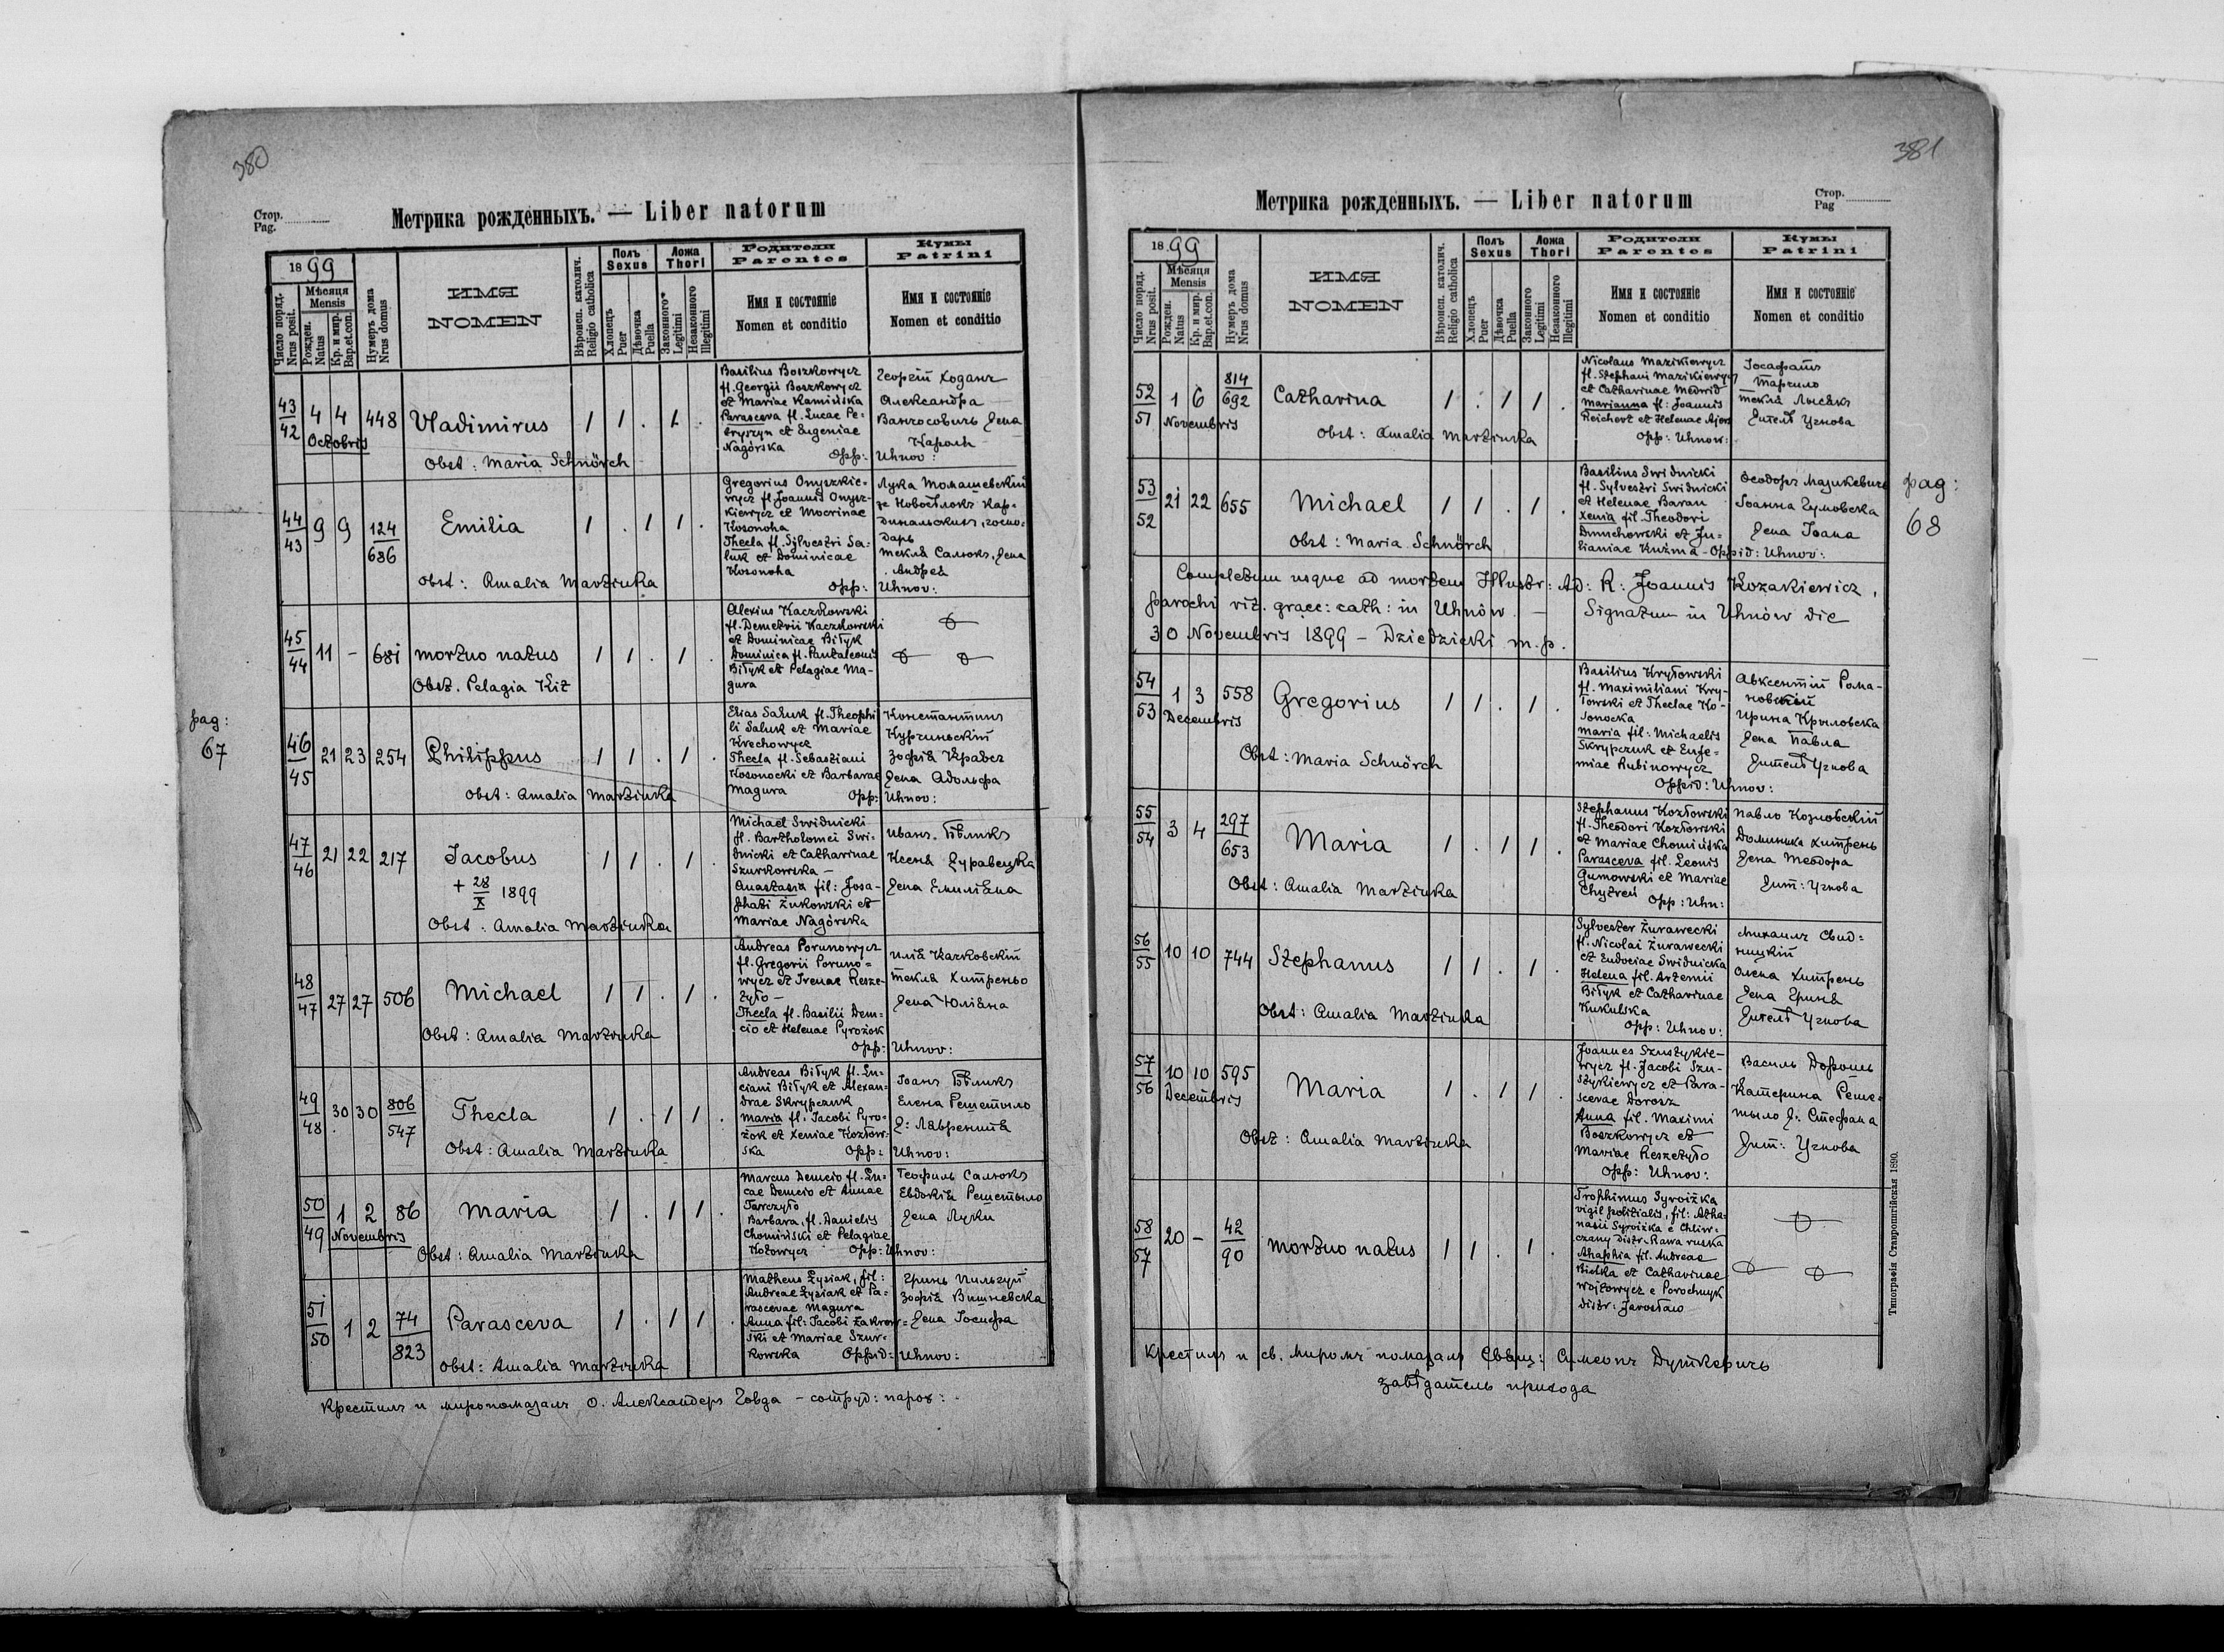 380
Стор.
Pag.
Метрика рожденныхъ. — Liber natorum
18 99
Число поряд.
Nrus posit.
Мѣсяця
Mensis
Рожден.
Natus
Кр. и мир.
Bap.et.con.
Нумеръ дома
Nrus domus
ИМЯ
NOMEN
Вѣроисп. католич.
Religio catholica
Полъ
Sexus
Хлопецъ
Puer
Дѣвочка
Puella
Ложа
Thori
Законного
Legitimi
Незаконного
Illegitimi
Родители
Parentes
Имя и состоянiе
Nomen et conditio
Кумы
Patrini
Имя и состоянiе
Nomen et conditio
43/42 4 4 448 Vladimirus 1 1 . 1 .
Octobris
Obst: Maria Schnörch
Basilius Boszkowycz
fl. Georgii Boszkowycz
et Mariae Kamińska
Parasceva fl. Lucae Pe-
tryszyn et Eugeniae
Nagórska
Opp: Uhnov:
Георгій Ходанъ
Александра
Ванчосовичъ жена
Кароля
44/43 9 9 124/686 Emilia 1 . 1 1 .
Obst: Amalia Martiuka
Gregorius Onyszkie-
wycz fl. Joannis Onysz-
kiewycz et Mocrinae
Kosonoha
Thecla fl. Sylvestri Sa-
luk et Dominicae
Kosonoha
Opp: Uhnov:
Лука Томашевскій
Текля Салюкъ, жена
Андрея
45/44 11 - 681 mortuo natus 1 1 . 1 .
Obst. Pelagia Kit
Alexius Kaczkowski
fl. Demetrii Kaczkowski
et Dominicae Biłyk
Dominica fl. Pantaleonis
Biłyk et Pelagiae Ma-
gura
pag:
67
46/45 21 23 254 Philippus 1 1 . 1 .
Obst: Amalia Martiuka
Elias Saluk fl. Theophi
li Saluk et Mariae
Krechowycz
Thecla fl. Sebastiani
Kosonocki et Barbarae
Magura
Opp: Uhnov:
Константинъ
Курчиньскій
Зофія Кравец
жена Адольфа
47/46 21 22 217 Jacobus 1 1 . 1 .
+ 28/X 1899
Obst: Amalia Martiuka
Michael Swidnicki
fl. Bartholomei Swi-
dnicki et Catharinae
Szurkowska -
Anastasia fil: Josa-
phati Żukowski et
Mariae Nagórska
Иванъ Бѣликъ
Ксеня Журавецка
жена Емиліана
48/47 27 27 506 Michael 1 1 . 1 .
Obst: Amalia Martiuka
Andreas Porunowycz
fl. Gregorii Poruno-
wycz et Irenae Resze-
tyło -
Thecla fl. Basilii Dem-
cio et Helenae Pyrożok
Opp: Uhnov:
Илія Качковскій
Текля Хитреньо
жена Юліана
49/48 30 30 806/547 Thecla 1 . 1 1 .
Obst: Amalia Martiuka
Andreas Biłyk fl. Lu-
ciani Biłyk et Alexan-
drae Skrypczuk
Maria fl: Jacobi Pyro-
żok et Xeniae Kozłow-
ska Opp: Uhnov:
Іоанъ Бѣликъ
Елена Решетыло
ж: Лаврентія
50/49 1 2 86 Maria 1 . 1 1 .
Novembris
Obst: Amalia Martiuka
Marcus Demcio fl. Lu-
cae Demcio et Annae
Tarczyło
Barbara, fl. Danielis
Chomiński et Pelagiae
Hołowycz Opp: Uhnov:
Теофиль Салюкъ
Евдокія Решетыло
жена Луки
51/50 1 2 74/823 Parasceva 1 . 1 1 .
Obst: Amalia Martiuka
Matheus Łysiak, fil:
Andreae Łysiak et Pa-
rascevae Magura
Anna fil: Jacobi Zakrow-
ski et Mariae Szur-
kowska Oppid: Uhnov:
Гринь Пильгуй
Зофія Вишневска
жена Іосифа
Крестилъ и миропомазалъ О. Александеръ Говда - сотруд: парох:
381
Метрика рожденныхъ. — Liber natorum
Стор.
Pag
18 99
Число поряд.
Nrus posit.
Мѣсяця
Mensis
Рожден.
Natus
Кр. и мир.
Bap.et.con.
Нумеръ дома
Nrus domus
ИМЯ
NOMEN
Вѣроисп. католич.
Religio catholica
Полъ
Sexus
Хлопецъ
Puer
Дѣвочка
Puella
Ложа
Thori
Законного
Legitimi
Незаконного
Illegitimi
Родители
Parentes
Имя и состоянiе
Nomen et conditio
Кумы
Patrini
Имя и состоянiе
Nomen et conditio
52/51 1 6 814/692 Catharina 1 . 1 1 .
Novembris
Obst: Amalia Martiuka
Nicolaus Mazikiewycz
fl. Stephani Mazikiewycz
et Catharinae Medwid
Marianna fl: Joannis
Reichert et Helenae
Opp: Uhnow:
Іосафатъ
Тарчило
Текля Лысякъ
жителѣ Угнова
53/52 21 22 655 Michael 1 1 . 1 .
Obst: Maria Schnörch
Basilius Swidnicki
fl. Sylvestri Swidnicki
et Helenae Baran
Xenia fil. Theodori
Dmuchowski et Ju-
lianiae Kuźma - Oppid: Uhnov:
Феодоръ Мазикевичъ
Іоанна Гумовска
жена Іоана
pag:
68
Completum usque ad mortem Illustr: Ad: R: Joannis Kozakiewicz,
parochi rit. graec: cath: in Uhnów. — Signatum in Uhnów die
30 Novembris 1899 - Dziedzicki m.p.
54/53 1 3 558 Gregorius 1 1 . 1 .
Decembris
Obst: Maria Schnörch
Basilius Kryłowski
fl. Maximiliani Kry-
łowski et Theclae Ko-
sonocka
Maria fil: Michaelis
Skrypczuk et Eufe-
miae Rubinowycz
Oppid: Uhnov:
Авксентій Рома-
новскій
Ирина Крыловска
жена Павла
жителѣ Угнова
55/54 3 4 297/653 Maria 1 . 1 1 .
Obst: Amalia Martiuka
Stephanus Kozłowski
fl. Theodori Kozłowski
et Mariae Chomińska
Parasceva fil. Leonis
Gumowski et Mariae
Chytreń Opp: Uhn:
Павло Козловскій
Доминика Хитрень
жена Теодора
жит: Угнова
56/55 10 10 744 Stephanus 1 1 . 1 .
Obst: Amalia Martiuka
Sylvester Żurawecki
fl. Nicolai Żurawecki
et Eudociae Swidnicka
Helena fil. Artemii
Biłyk et Catharinae
Kukulska
Opp: Uhnov:
Михаилъ Свид-
ницкій
Олена Хитрень
жена Гриня
жителѣ Угнова
57/56 10 10 595 Maria 1 . 1 1 .
Decembris
Obst: Amalia Martiuka
Joannes Szustykie-
wycz fl. Jacobi Szu-
stykiewycz et Para-
scevae Dorosz
Anna fil. Maximi
Boszkowycz et
Mariae Reszetyło
Opp: Uhnov:
Василь Дорошъ
Катерина Реше-
тыло ж: Стефана
жит: Угнова
58/57 20 - 42/90 mortuo natus 1 1 . 1 .
Trophimus Syroiżka
vigil politialis, fil: Atha-
nasii Syroiżka e Chliw-
czany distr. Rawa ruska
Ahaphia fil. Andreae
Bielka et Catharinae
Wojtowycz e Porochnyk
distr: Jarosław
Крестилъ и св. мѵромъ помазалъ Свящ: Симеонъ Дуткевичъ
завѣдатель прихода
Типографія Ставропигійская 1890.